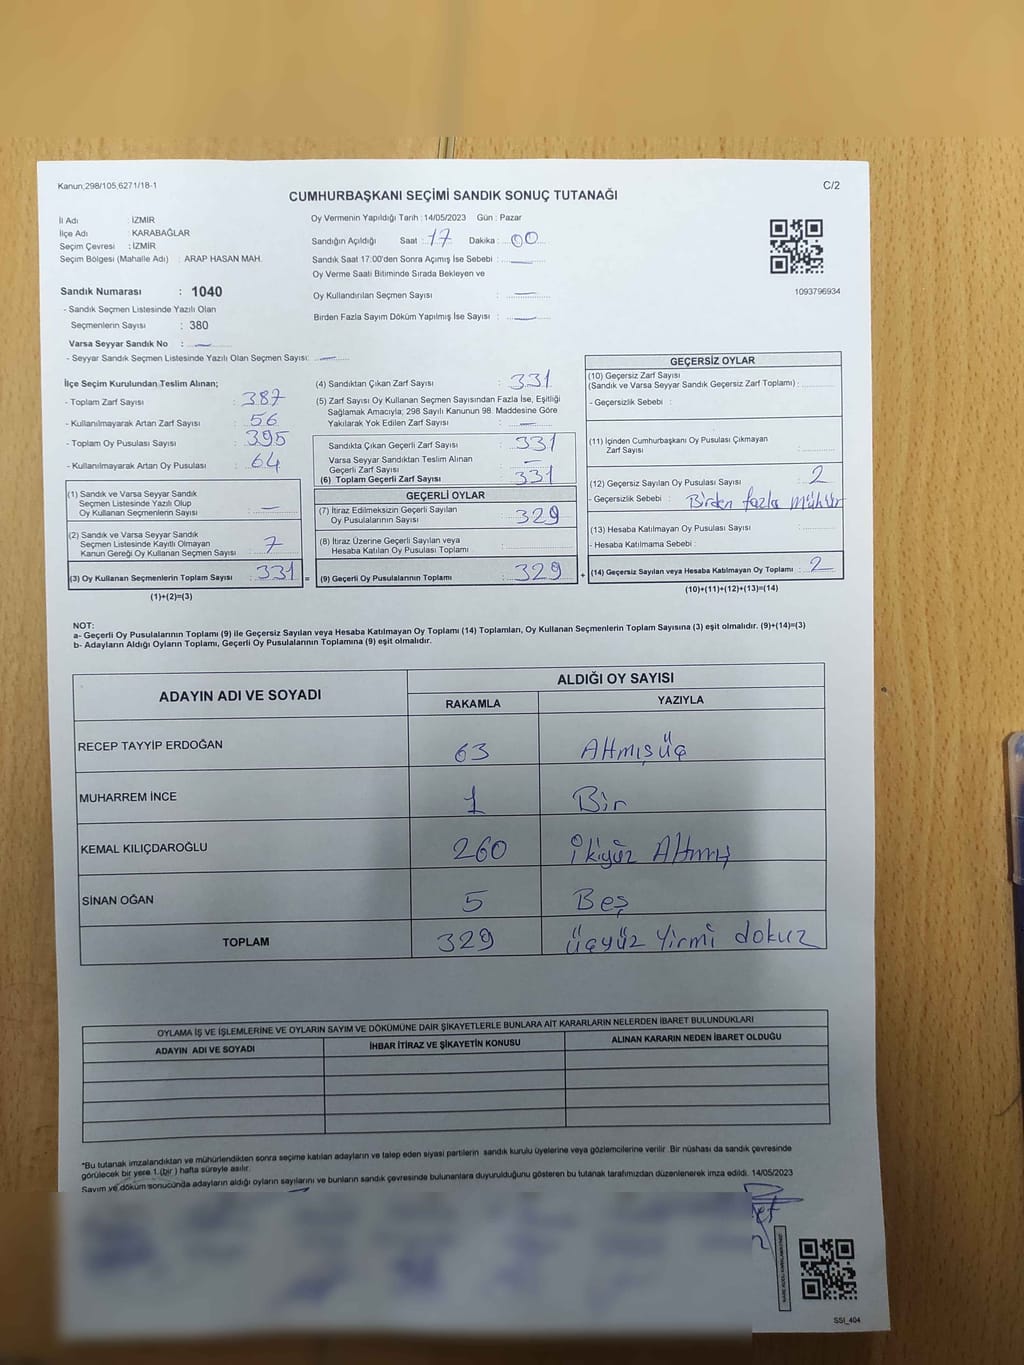 Kanun;298/105,6271/18-1
C/2
CUMHURBAŞKANI SEÇİMİ SANDIK SONUÇ TUTANAĞI
İl Adı : İZMİR
İlçe Adı : KARABAĞLAR
Seçim Çevresi : İZMİR
Seçim Bölgesi (Mahalle Adı) : ARAP HASAN MAH.
Oy Vermenin Yapıldığı Tarih : 14/05/2023 Gün : Pazar
Sandığın Açıldığı Saat : 17 Dakika : 00
Sandık Saat 17:00'den Sonra Açımış İse Sebebi : —
Oy Verme Saati Bitiminde Sırada Bekleyen ve
Oy Kullandırılan Seçmen Sayısı : —
Birden Fazla Sayım Döküm Yapılmış İse Sayısı : —
1093796934
Sandık Numarası : 1040
- Sandık Seçmen Listesinde Yazılı Olan
Seçmenlerin Sayısı : 380
Varsa Seyyar Sandık No : —
- Seyyar Sandık Seçmen Listesinde Yazılı Olan Seçmen Sayısı: —
İlçe Seçim Kurulundan Teslim Alınan;
- Toplam Zarf Sayısı : 387
- Kullanılmayarak Artan Zarf Sayısı : 56
- Toplam Oy Pusulası Sayısı : 395
- Kullanılmayarak Artan Oy Pusulası : 64
(1) Sandık ve Varsa Seyyar Sandık
Seçmen Listesinde Yazılı Olup
Oy Kullanan Seçmenlerin Sayısı : —
(2) Sandık ve Varsa Seyyar Sandık
Seçmen Listesinde Kayıtlı Olmayan
Kanun Gereği Oy Kullanan Seçmen Sayısı : 7
(3) Oy Kullanan Seçmenlerin Toplam Sayısı : 331 =
(1)+(2)=(3)
(4) Sandıktan Çıkan Zarf Sayısı : 331
(5) Zarf Sayısı Oy Kullanan Seçmen Sayısından Fazla İse, Eşitliği
Sağlamak Amacıyla; 298 Sayılı Kanunun 98. Maddesine Göre
Yakılarak Yok Edilen Zarf Sayısı : —
Sandıkta Çıkan Geçerli Zarf Sayısı : 331
Varsa Seyyar Sandıktan Teslim Alınan
Geçerli Zarf Sayısı : —
(6) Toplam Geçerli Zarf Sayısı : 331
GEÇERLİ OYLAR
(7) İtiraz Edilmeksizin Geçerli Sayılan
Oy Pusulalarının Sayısı : 329
(8) İtiraz Üzerine Geçerli Sayılan veya
Hesaba Katılan Oy Pusulası Toplamı :
(9) Geçerli Oy Pusulalarının Toplamı : 329 +
GEÇERSİZ OYLAR
(10) Geçersiz Zarf Sayısı
(Sandık ve Varsa Seyyar Sandık Geçersiz Zarf Toplamı) :
- Geçersizlik Sebebi :
(11) İçinden Cumhurbaşkanı Oy Pusulası Çıkmayan
Zarf Sayısı :
(12) Geçersiz Sayılan Oy Pusulası Sayısı : 2
- Geçersizlik Sebebi : Birden fazla mühür
(13) Hesaba Katılmayan Oy Pusulası Sayısı :
- Hesaba Katılmama Sebebi :
(14) Geçersiz Sayılan veya Hesaba Katılmayan Oy Toplamı : 2
(10)+(11)+(12)+(13)=(14)
NOT:
a- Geçerli Oy Pusulalarının Toplamı (9) ile Geçersiz Sayılan veya Hesaba Katılmayan Oy Toplamı (14) Toplamları, Oy Kullanan Seçmenlerin Toplam Sayısına (3) eşit olmalıdır. (9)+(14)=(3)
b- Adayların Aldığı Oyların Toplamı, Geçerli Oy Pusulalarının Toplamına (9) eşit olmalıdır.
ADAYIN ADI VE SOYADI
ALDIĞI OY SAYISI
RAKAMLA YAZIYLA
RECEP TAYYİP ERDOĞAN 63 Altmışüç
MUHARREM İNCE 1 Bir
KEMAL KILIÇDAROĞLU 260 ikiyüz Altmış
SİNAN OĞAN 5 Beş
TOPLAM 329 üçyüz Yirmi dokuz
OYLAMA İŞ VE İŞLEMLERİNE VE OYLARIN SAYIM VE DÖKÜMÜNE DAİR ŞİKAYETLERLE BUNLARA AİT KARARLARIN NELERDEN İBARET BULUNDUKLARI
ADAYIN ADI VE SOYADI İHBAR İTİRAZ VE ŞİKAYETİN KONUSU ALINAN KARARIN NEDEN İBARET OLDUĞU
*Bu tutanak imzalandıktan ve mühürlendikten sonra seçime katılan adayların ve talep eden siyasi partilerin sandık kurulu üyelerine veya gözlemcilerine verilir. Bir nüshası da sandık çevresinde
görülecek bir yere 1 (bir ) hafta süreyle asılır.
Sayım ve döküm sonucunda adayların aldığı oyların sayılarını ve bunların sandık çevresinde bulunanlara duyurulduğunu gösteren bu tutanak tarafımızdan düzenlenerek imza edildi. 14/05/2023
SSI_404